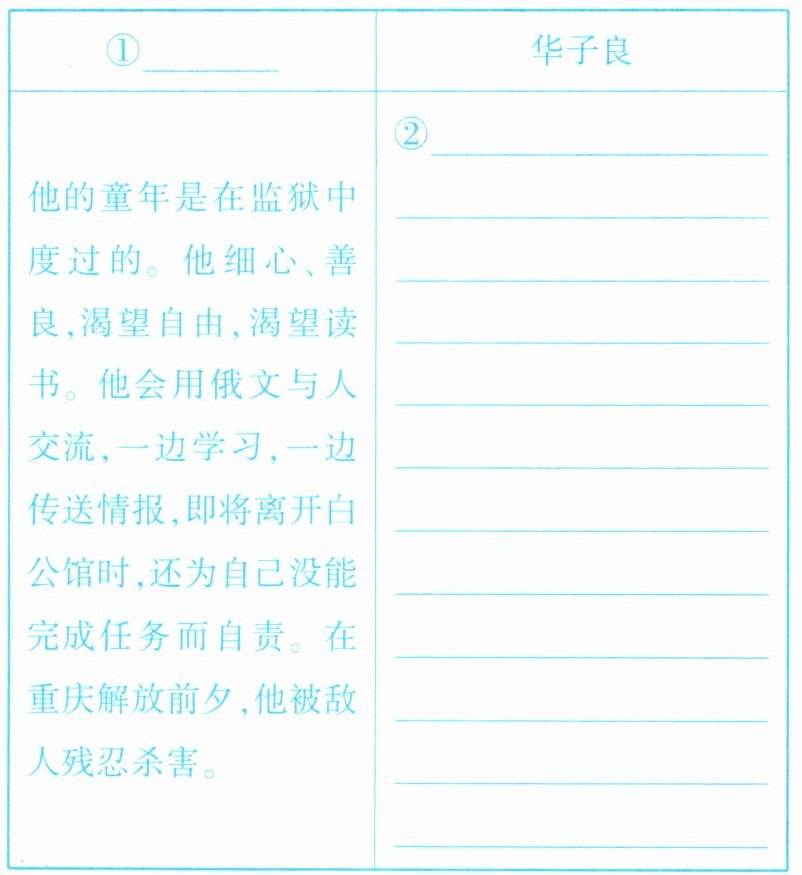 ① 华子良
②
他的童年是在监狱中
度过的。他细心、善
良,渴望自由,渴望读
书。他会用俄文与人
交流,一边学习,一边
传送情报,即将离开白
公馆时,还为自己没能
完成任务而自责。在
重庆解放前夕,他被敌
人残忍杀害。